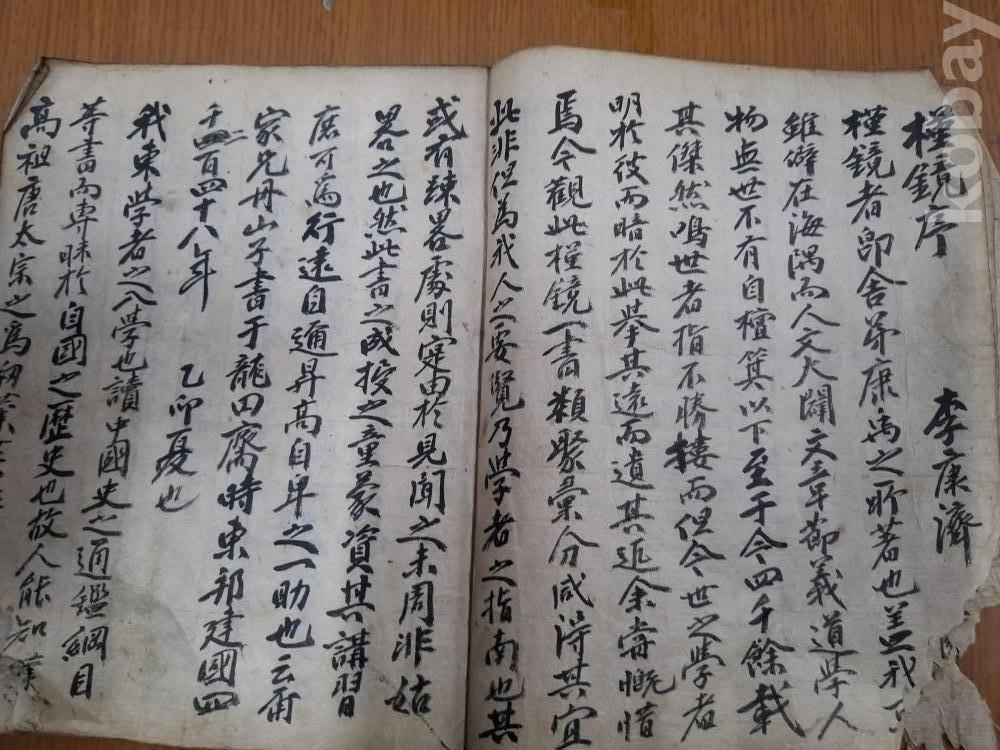 槿鏡序
李康濟
槿鏡者卽舍弟康禹之所著也盖我
雖僻在海隅而人文大闡文章節義道學人
物無世不有自檀箕以下至于今四千餘載
其傑然鳴世者指不勝搂而但今世之學者
明於彼而暗於此擧其遠而遺其近余嘗慨惜
焉今觀此槿鏡一書類聚彙分咸得其宜
此非但爲我人之要覽乃學者之指南也其
或有踈畧處則寔由於見聞之未周非姑
畧之也然此書之成授之童蒙資其講習
庶可爲行遠自邇昇高自卑之一助也云甬
家兄丹山子書于龍田齋時東邦建國四
千二百四十八年 乙卯夏也
我東學者之入學也讀中國史之通鑑綱目
等書而專昧於自國之歷史也故人能知漢
高祖唐太宗之爲
kobay